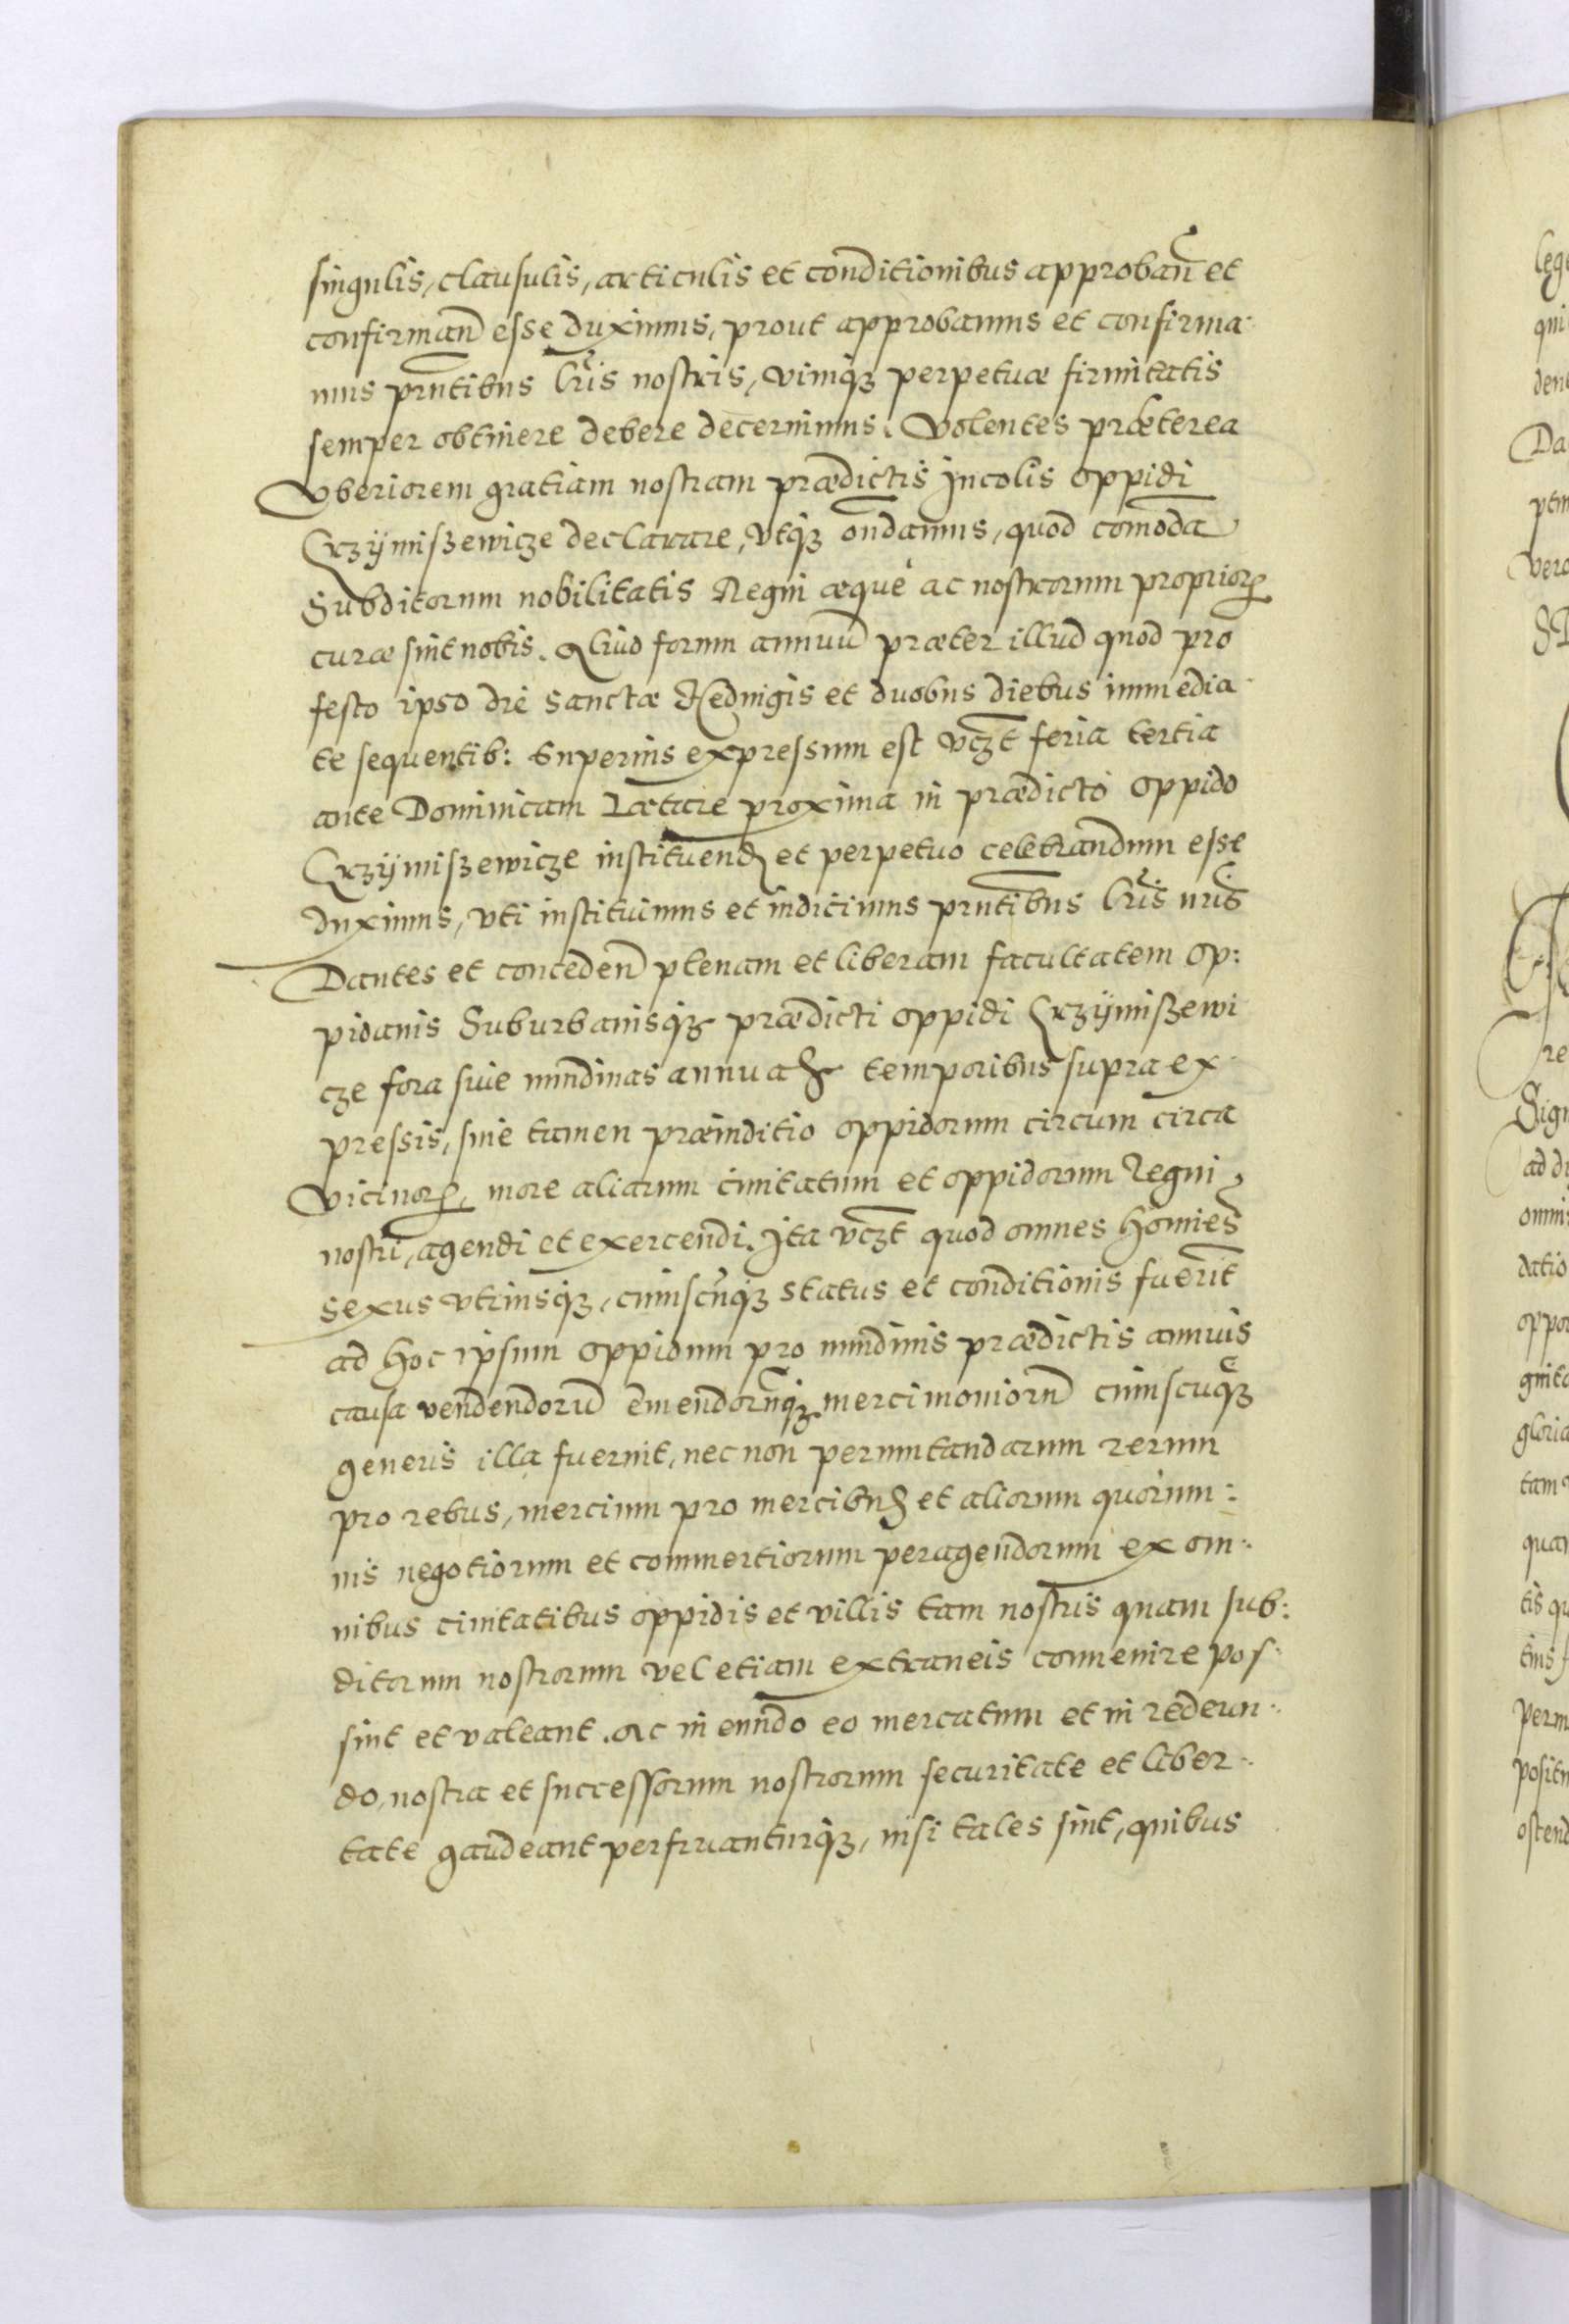 singulis, clausulis, articulis et conditionibus approban̄ et
confirman̄ esse duximus, prout approbamus et confirma-
mus prn̄tibus lr̄is nostris, vimq₃ perpetuæ firmitatis
semper obtinere debere decernimus. Volentes præterea
Vberiorem gratiam nostram prædictis Incolis oppidi
Krzÿmißewicze declarare, vtq₃ ondamus, quod comoda
Subditorum nobilitatis Regni æque ac nostrorum proprior
curæ sint nobis. Aliud forum annuū præter illud quod pro
festo ipso die Sanctæ Heduigis et duobus diebus immedia-
te sequentib: superius expressum est vcz̄t feria tertia
ante Dominicam Lætare proxima in prædicto oppido
Krzÿmißewicze instituend et perpetuo celebrandum esse
duximus, vti instituimus et indicimus prn̄tibus lr̄is nr̄is
Dantes et conceden̄ plenam et liberam facultatem op:
pidanis Suburbanisq₃ prædicti oppidi Krzÿmißewi
cze fora siue nundinas annuas temporibus supra ex-
pressis, sine tamen præiuditio oppidorum circum circa
Vicinor, more aliarum ciuitatum et oppidorum Regni
nostri, agendi et exercendi. Ita vcz̄t quod omnes homīes
sexus vtriusq₃, cuiuscūq₃ status et conditionis fuerīt
ad hoc ipsum oppidum pro nundinis prædictis annuis
causa vendendorū emendorūq₃ mercimoniorū cuiuscūq₃
generis illa fuerint, nec non permutandarum rerum
pro rebus, mercium pro mercibus et aliorum quorum:
uis negotiorum et commertiorum peragendorum ex om-
nibus ciuitatibus oppidis et villis tam nostris quam sub:
ditorum nostrorum vel etiam extraneis conuenire pos-
sint et valeant. Ac in eundo eo mercatum et in redeun-
do, nostra et successorum nostrorum securitate et liber-
tate gaudeant perfruanturq₃, nisi tales sint, quibus